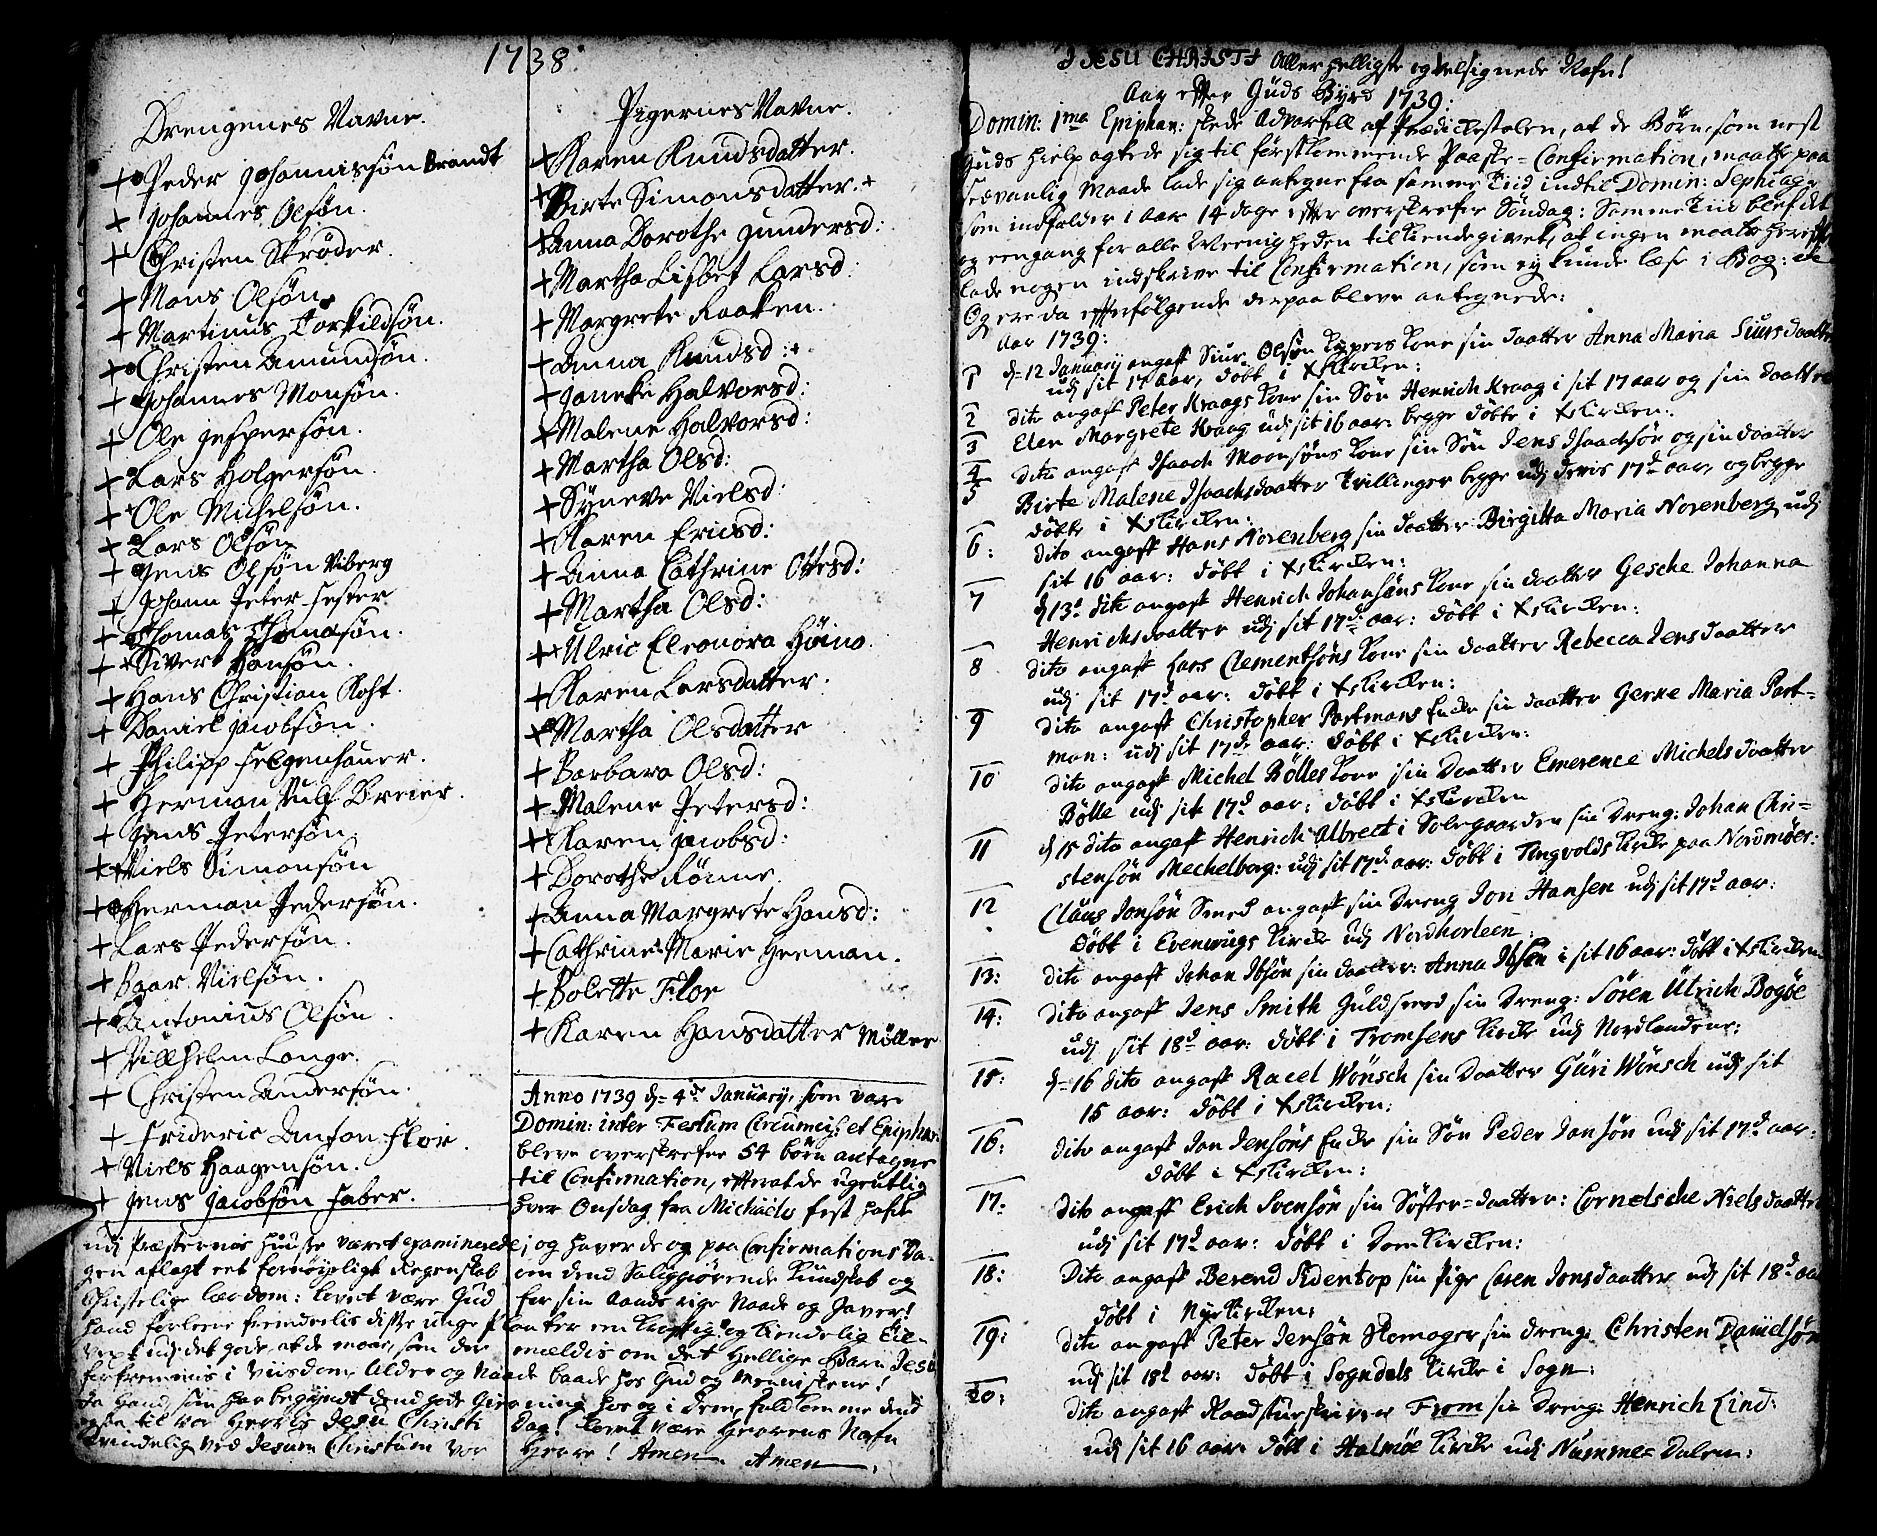 1738.
Drengenes Navne.
+ Peder Johannissøn Brandt
+ Johannes Olsøn.
+ Christen Skrøder.
+ Mons Olsøn
+ Martinus Torkildsøn.
+ Christen Amundsøn.
+ Johannes Monsøn.
+ Ole Jespersøn.
+ Lars Holgersøn.
+ Ole Michelsøn.
+ Lars Olsøn
+ Jens Olsøn Viberg
+ Johann Peter Fester
+ Thomas Thomasøn.
+ Sivert Hansøn.
+ Hans Christian Koht.
+ Daniel Jacobsøn.
+ Philipp Felgenhauer.
+ Herman Wulf Breier.
+ Jens Petersøn
+ Niels Simonsøn
+ Herman Pedersøn.
+ Lars Pedersøn.
+ Baar Nielsøn.
+ Antonius Olsøn.
+ Villhelm Lange.
+ Christen Andersøn.
+ Frideric Anton Flor.
+ Niels Haagensøn.
+ Jens Jacobsøn Faber.
Pigernes Navne.
+ Karen Knudsdatter.
+ Birte Simonsdatter.
+ Anna Dorothe Gundersd:
+ Martha Lisbet Larsd:
+ Margrete Kaaken.
+ Anna Knudsd:
+ Janeke Halvorsd:
+ Malene Halvorsd:
+ Martha Olsd:
+ Syneve Nielsd:
+ Karen Ericsd:
+ Anna Cathrine Ottesd:
+ Martha Olsd:
+ Ulric Eleonora Høino.
+ Karen Larsdatter.
+ Martha Olsdatter
+ Barbara Olsd:
+ Malene Petersd:
+ Karen Jacobsd:
+ Dorothe Rønne.
+ Anna Margrete Hansd:
+ Cathrine Marie Herman.
+ Bolette Flor
+ Karen Hansdatter Møller
Anno 1739 d= 4de January, som var
Domin: inter Festum Circumcis: et Epiphan:
bleve overskrefne 54 børn antagne
til Confirmation, efterat de ugentlig
hver Onsdag fra Michaëlis fest hafde
udj Præsternes Huuse været examinerede; og haver de og paa Confirmations Da-
gen aflagt eet fornøyeligt Regenskab om dend Saliggiørende Kundskab og
Christelige lærdom: Lovet være Gud for sin aands rige Naade og Gaver!
hand forleene fremdeelis disse unge planter en kraftig og kiendelig til-
vext udj det gode, at de maae, som der meldis om det Hellige Barn Jesu
forfremmis i Viisdom, Alder og Naade baade hos Gud og Menniskene!
Ja Hand, som har begyndt dend gode Gierning hos og i dem, fuldkomme dend
ogsaa til vor Herris Jesu Christi Dag! Lovet være Herrens Nafn
ved Jesum Christum vor Herre! Amen. Amen.
I JESU CHRISTI Allerhelligste og velsignede Nafn!
Aar efter Guds Byrd 1739:
Domin: 1ma Epiphan: skede Advarsell af Prædickestolen, at de Børn, som nest
Guds hielp agtede sig til førstkommende Paaske-Confirmation, maatte paa
sedvanlig Maade lade sig antegne fra samme Tiid indtil Domin: Septuag:
som indfalder i Aar 14 dage efter overskrefne Søndag: Samme Tiid blef det
og eengang for alle Meenigheden tilkiendegivet, at ingen maatte herefter
lade nogen indskrive til Confirmation, som ey kunde læse i Bog: de
Og ere da efterfølgende derpaa bleve antegnede:
Aar 1739:
1 d=12 January angaf Siur Olsøn Kypers kone sin daatter Anna Maria Siursdaatter
udj sit 17 aar, døbt i +Kircken:
2 dito angaf Peter Kraags kone sin Søn Henrich Kraag i sit 17 aar og sin daatter
3 Elen Margrete Kraag udj sit 16 aar begge døbte i +Kircken:
4 dito angaf Isaach Monsøns kone sin Søn Jens Isaachsøn og sin daatter
5 Birte Malene Isaachsdaatter Tvillinger begge udj deris 17d aar, og begge
døbte i +Kircken:
6: dito angaf Hans Norenberg sin daatter Birgitta Maria Norenberg udj
sit 16 aar: døbt i +Kircken:
7 d 13d dito angaf Henrich Johansøns kone sin daatter Gesche Johanna
Henrichsdaatter udj sit 17de aar: døbt i +Kircken:
8 dito angaf Lars Clementsøns kone sin daatter Rebecca Jensdaatter
udj sit 17d aar: døbt i +Kircken:
9 dito angaf Christopher Portmans Encke sin daatter Gerke Maria Port-
man: udj sit 17de aar: døbt i +Kircken:
10 dito angaf Michel Bølles kone sin daatter Emerence Michelsdaatter
Bølle udj sit 17d aar: døbt i +Kircken
11 d 15 dito angaf Henrich Albrect i Solegaarden sin dreng: Johan Chri-
stensøn Mechelborg: udj sit 17d aar: døbt i Tingvolds Kirche paa Nordmøer:
12 Claus Jonsøn Smed angaf sin dreng Jon Hansen udj sit 17d aar:
døbt i Evenvigs Kirche udj Nordhorleen:
13: dito angaf Johan Ibsøn sin daatter: Anna Ibsen i sit 16 aar: døbt i +Kircken
14: dito angaf Jens Smith Guldsmed sin dreng: Søren Ulrich Bogøe
udj sit 18d aar: døbt i Tromsens Kirche udj Nordlandene:
15: d=16 dito angaf Racel Wønsch sin daatter Guri Wønsch udj sit
15 aar: døbt i +Kircken:
16: dito angaf Jan Jensøns Encke sin Søn Peder Jansøn udj sit 17d aar:
døbt i +Kircken:
17: dito angaf Erich Svensøn sin Søster-daatter: Cornelsche Nielsdaatter
udj sit 17d aar: døbt i Domkircken:
18: Dito angaf Berend Sidentop sin Pige Caren Jonsdaatter udj sit 18d aar
døbt i Nykircken:
19: dito angaf Peter Jensøn Skomager sin dreng: Christen Danielsøn
udj sit 18d aar: døbt i Sogndals Kirche i Sogn:
20: dito angaf Raadstueskriver From sin dreng: Henrich Lind:
udj sit 16 aar: døbt i Halmøe Kirche udj Nummedalen: